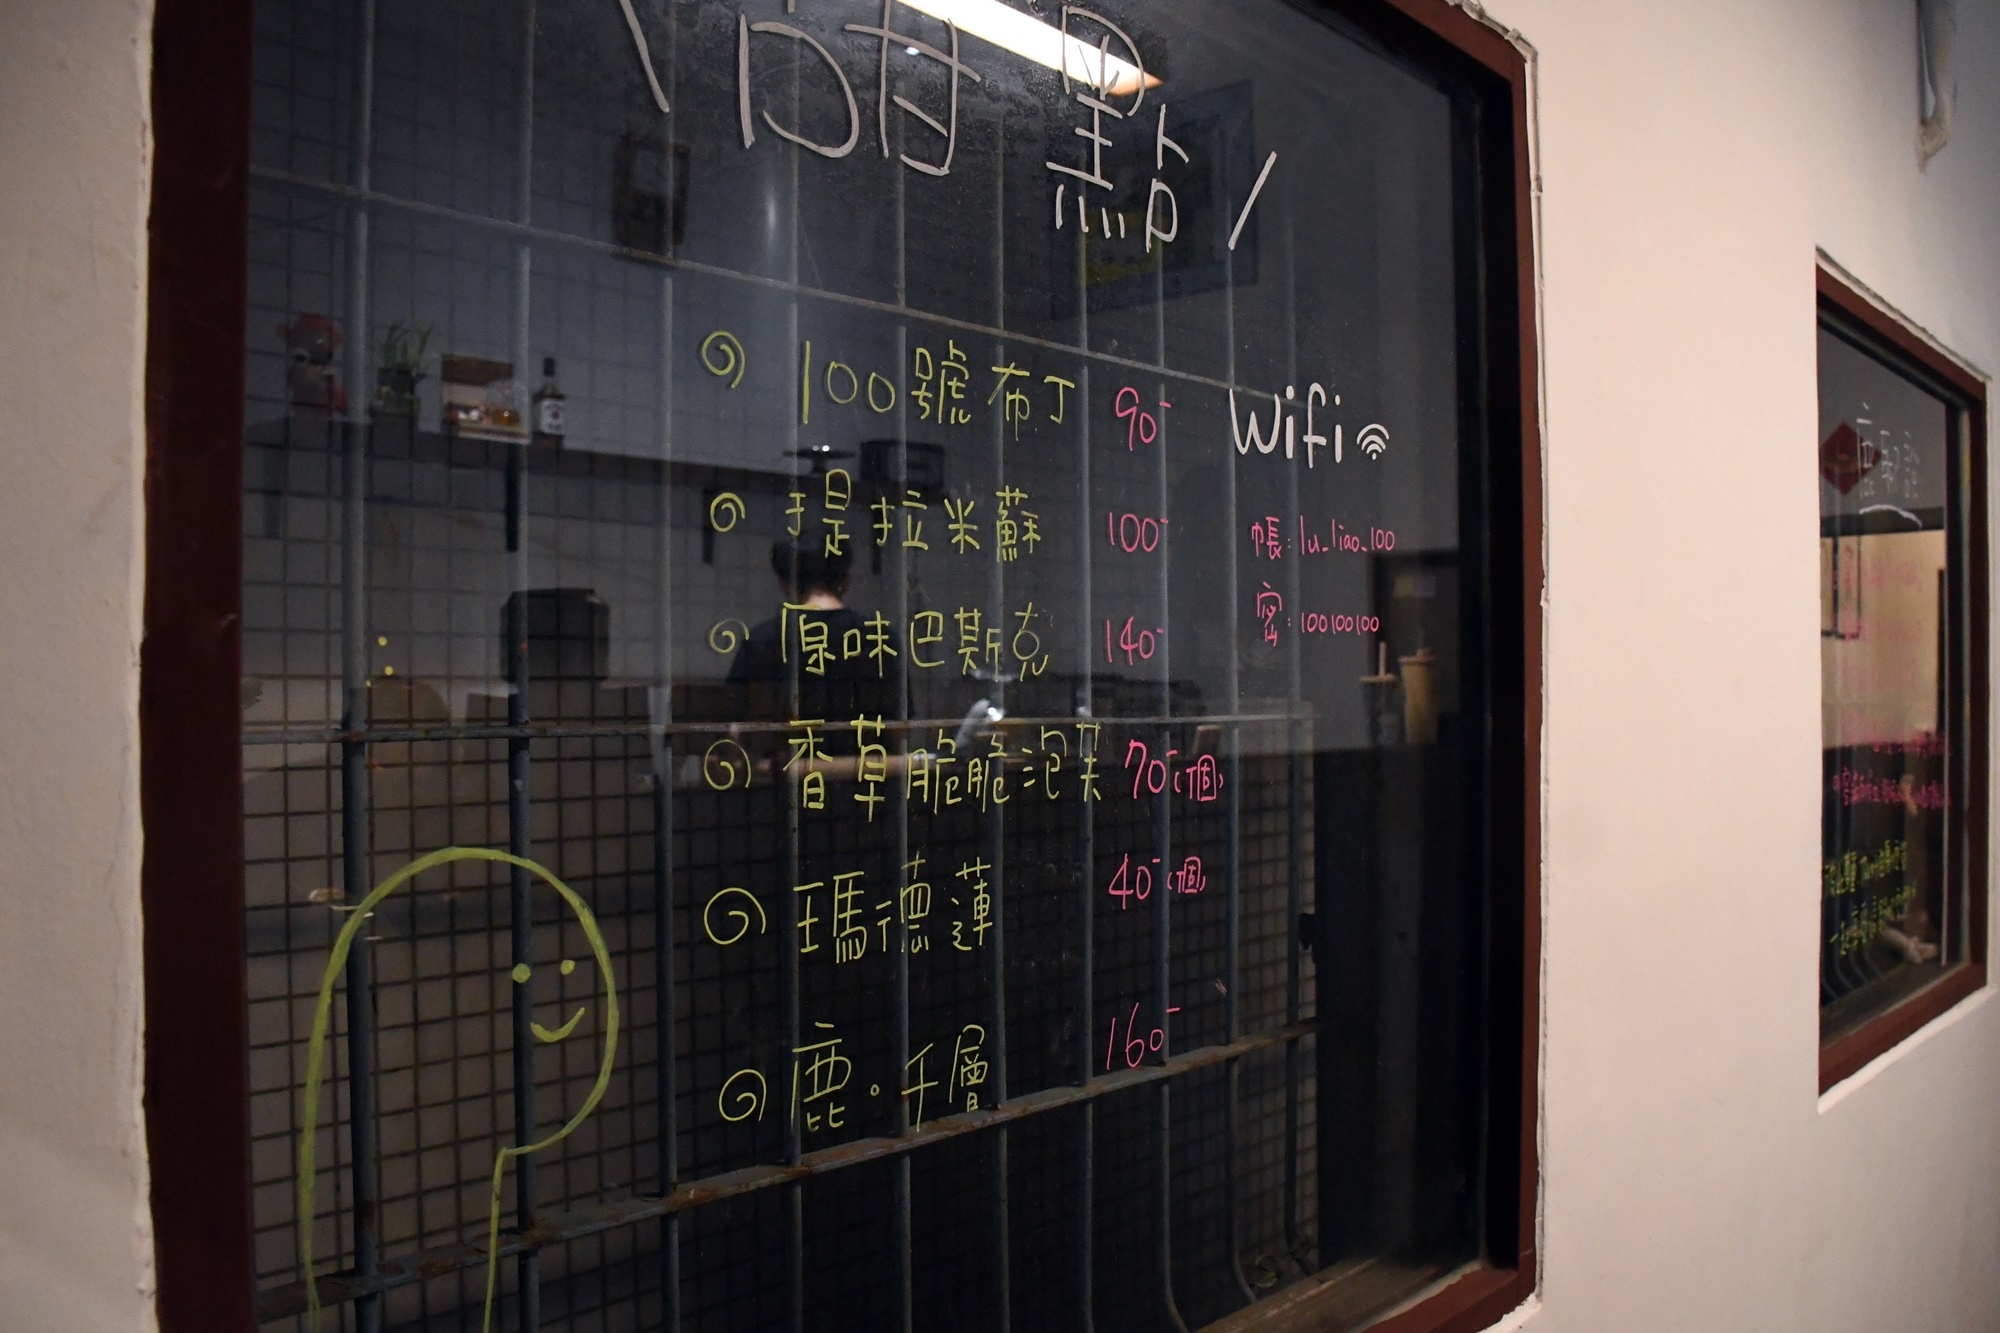 \甜點/
100號布丁 90-
提拉米蘇 100-
原味巴斯克 140-
香草脆脆泡芙 70-(個)
瑪德蓮 40-(個)
鹿。千層 160-
Wifi
帳:lu_liao_100
密:100100100